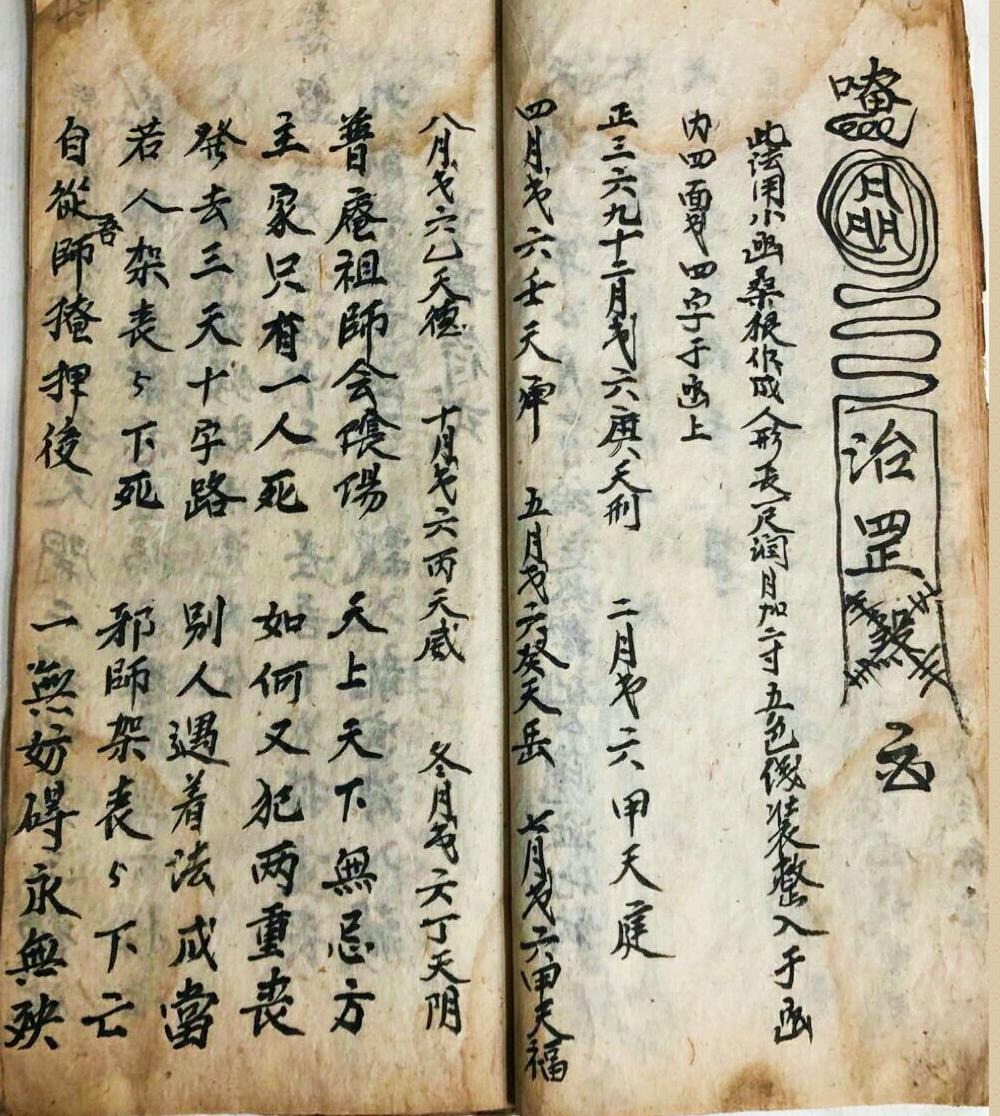 治罡煞
此法用小函桑根作成人形長一尺潤月加一寸五色线装整入于函
内四面书四字于函上
正三六九十二月书六庚天刑 二月书六甲天庭
四月书六壬天牢 五月书六癸天岳 七月书六甲天福
八月书六乙天德 十月书六丙天威 冬月书六丁天阴
普庵祖師会陰陽 天上天下無忌方
主家只有一人死 如何又犯两重丧
發去三天十字路 别人遇着法成當
若人架丧丧下死 邪師架丧丧下亡
自從吾師掩押後 一無妨碍永無殃